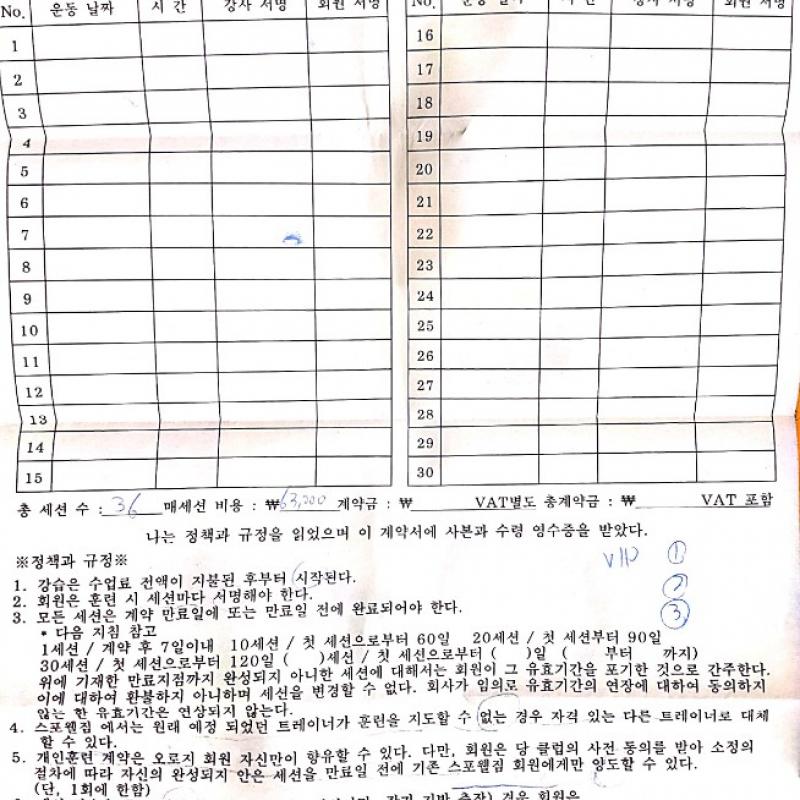 No. 운동 날짜 시 간 강사 서명 회원 서명
No.
1
2
3
4
5
6
7
8
9
10
11
12
13
14
15
16
17
18
19
20
21
22
23
24
25
26
27
28
29
30
총 세션 수 : 36 매세션 비용 : ₩63,000 계약금 : ₩ VAT별도 총계약금 : ₩ VAT 포함
나는 정책과 규정을 읽었으며 이 계약서에 사본과 수령 영수증을 받았다.
※정책과 규정※
VIP ①
②
③
1. 강습은 수업료 전액이 지불된 후부터 시작된다.
2. 회원은 훈련 시 세션마다 서명해야 한다.
3. 모든 세션은 계약 만료일에 또는 만료일 전에 완료되어야 한다.
* 다음 지침 참고
1세션 / 계약 후 7일이내 10세션 / 첫 세션으로부터 60일 20세션 / 첫 세션부터 90일
30세션 / 첫 세션으로부터 120일 ( )세션 / 첫 세션으로부터 ( )일 ( 부터 까지)
위에 기재한 만료지점까지 완성되지 아니한 세션에 대해서는 회원이 그 유효기간을 포기한 것으로 간주한다.
이에 대하여 환불하지 아니하며 세션을 변경할 수 없다. 회사가 임의로 유효기간의 연장에 대하여 동의하지
않는 한 유효기간은 연상되지 않는다.
4. 스포웰짐 에서는 원래 예정 되었던 트레이너가 훈련을 지도할 수 없는 경우 자격 있는 다른 트레이너로 대체
할 수 있다.
5. 개인훈련 계약은 오로지 회원 자신만이 향유할 수 있다. 다만, 회원은 당 클럽의 사전 동의를 받아 소정의
절차에 따라 자신의 완성되지 안은 세션을 만료일 전에 기존 스포웰짐 회원에게만 양도할 수 있다.
(단, 1회에 한함)